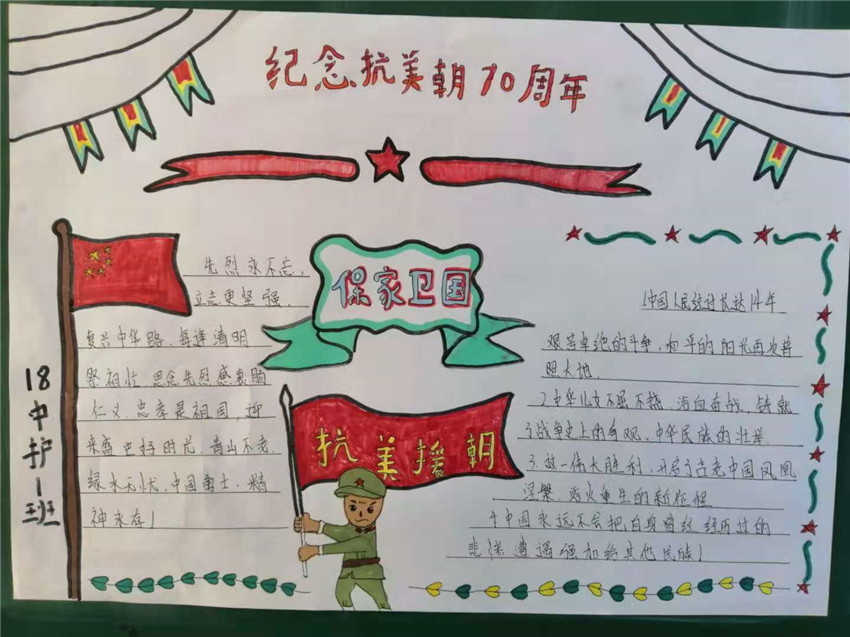 纪念抗美朝70周年
先烈永不忘,
立志更坚强.
复兴中华路.每逢清明
祭祖忙.思念先烈感衷肠
仁义.忠孝是祖国,迎
来盛世好时光.青山不老.
绿水无忧.中国勇士.精
神永存!
18中护1班
保家卫国
抗美援朝
1中国人民经过长达14年
艰苦卓绝的斗争.和平的阳光再次普
照大地
2中华儿女不屈不挠.浴血奋战.铸就
了战争史上的奇观.中华民族的壮举
3.这一伟大胜利,开启了古老中国凤凰
涅槃.浴火重生的新征程
4中国永远不会把自身曾经经历过的
悲惨遭遇强加给其他民族!